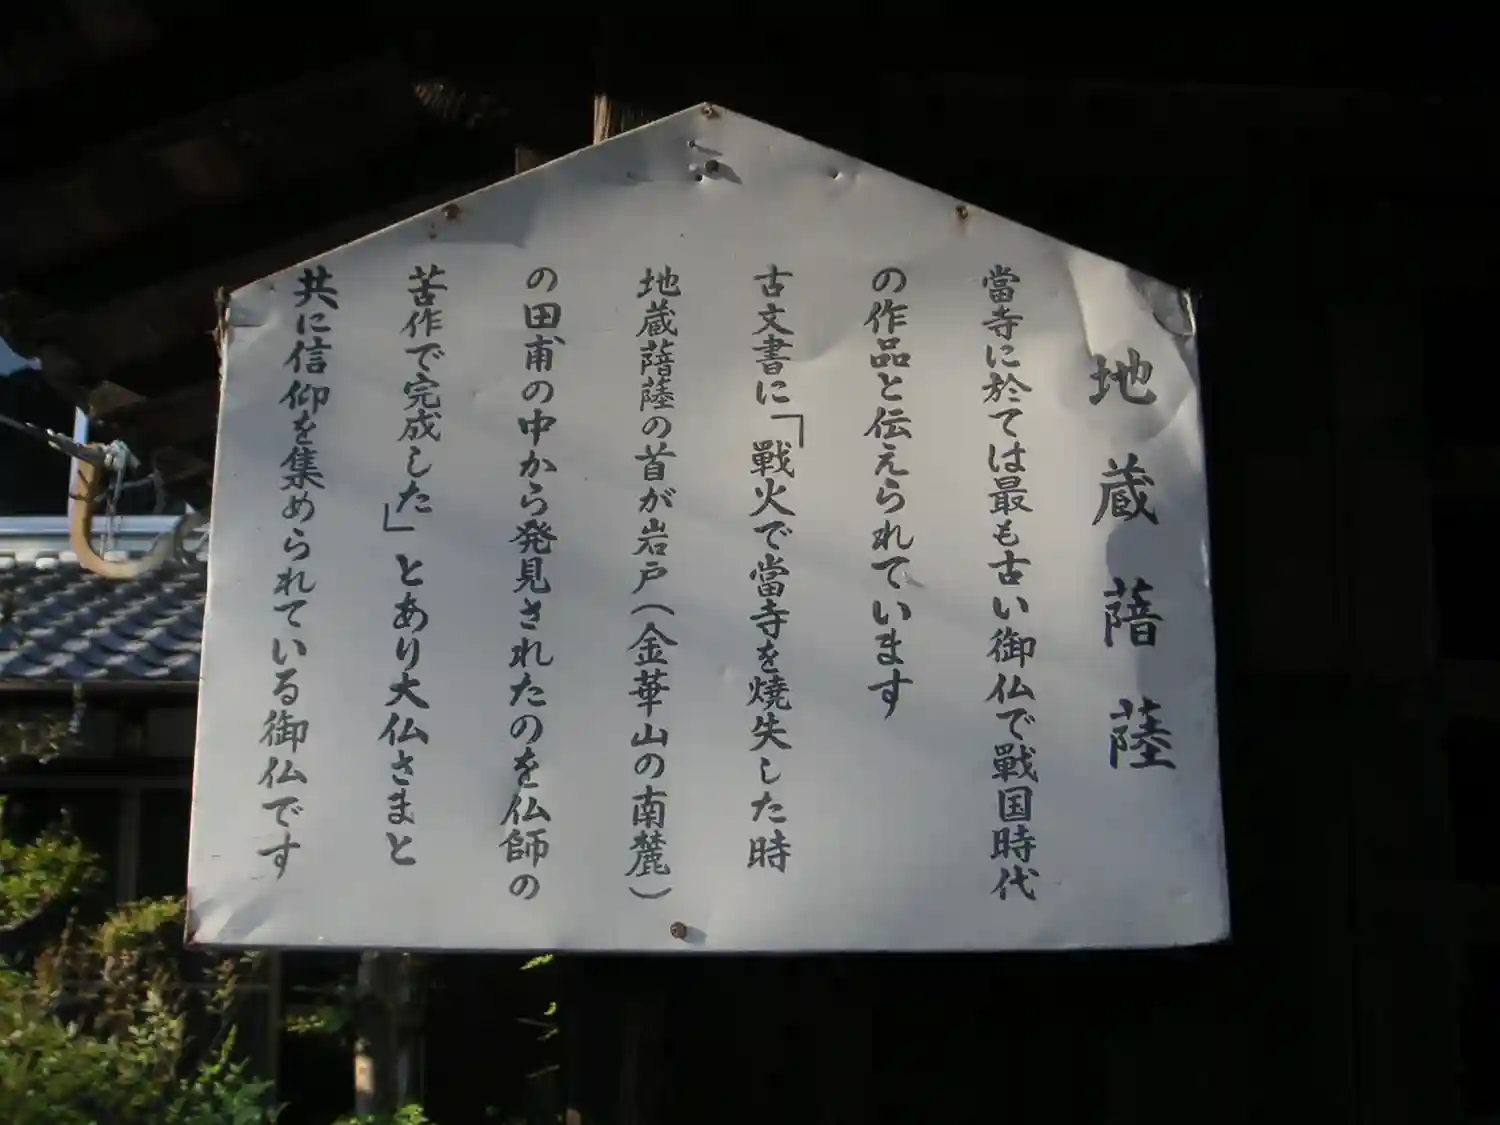 地蔵菩薩
當寺に於ては最も古い御仏で戰国時代
の作品と伝えられています
古文書に「戰火で當寺を焼失した時
地蔵菩薩の首が岩戸（金華山の南麓）
の田甫の中から発見されたのを仏師の
苦作で完成した」とあり大仏さまと
共に信仰を集められている御仏です